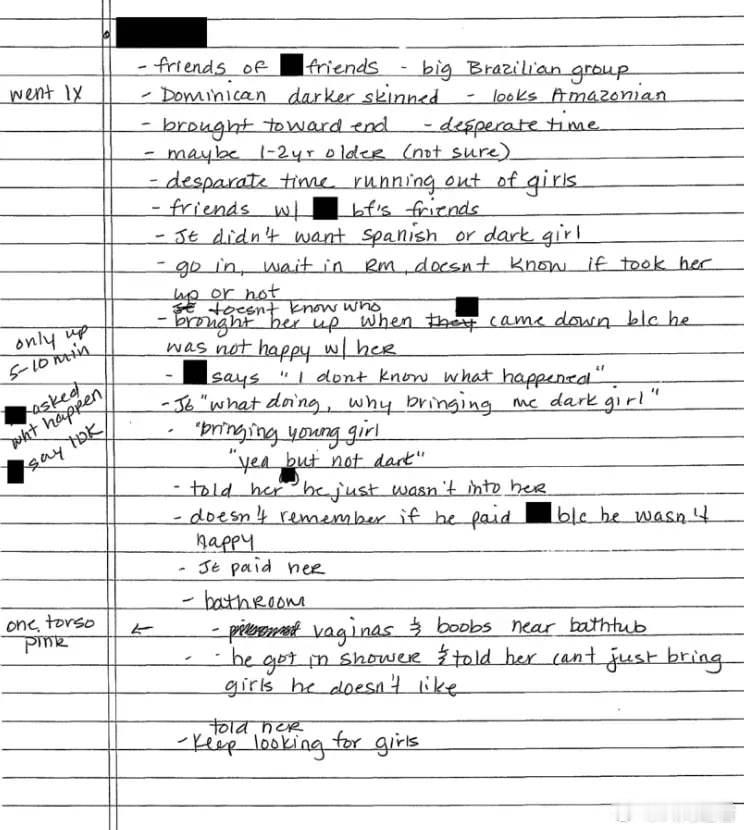 - friends of friends - big Brazilian group
went 1x
- Dominican darker skinned - looks Amazonian
- brought toward end - desperate time
- maybe 1-2yr older (not sure)
- desparate time running out of girls
- friends w/ bf's friends
- JE didn't want Spanish or dark girl
- go in, wait in RM, doesnt know if took her
up or not
doesnt know who
- brought her up when they came down b/c he
was not happy w/ her
only up
5-10 min
- says "I dont know what happened"
asked
wht happen
say IDK
- JE "what doing, why bringing me dark girl"
- "bringing young girl
"yea but not dark"
- told her he just wasn't into her
- doesn't remember if he paid b/c he wasn't
happy
- JE paid her
- bathroom
one torso
pink
← - vaginas & boobs near bathtub
- he got in shower & told her cant just bring
girls he doesn't like
told her
- Keep looking for girls